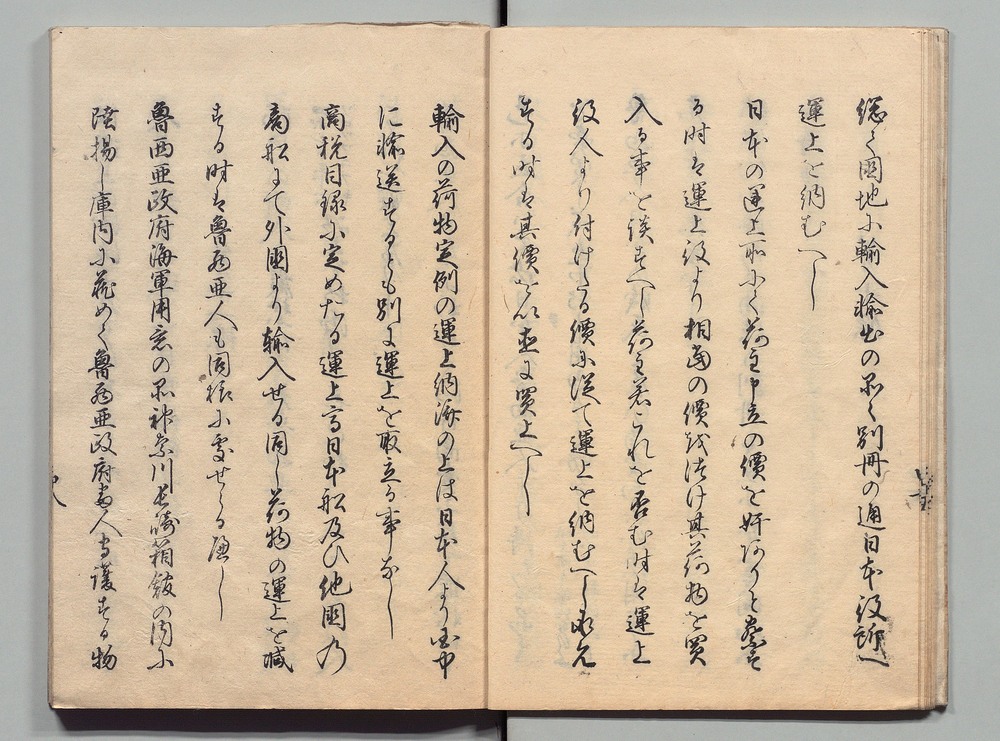 總て國地に輸入輸出の品々別冊の通日本役所へ
運上を納むへし
日本の運上所にて荷主申立の價を奸ありと察す
る時は運上役より相當の價を付け其荷物を買
入る事を談すへし荷主若これを否む時は運上
役人より付けたる價に従て運上を納むへし承允
する時は其價を以直に買上へし
輸入の荷物定例の運上納濟の上は日本人より國中
に輸送すとも別に運上を取立る事なし
商税目録に定めたる運上高日本船及ひ他國の
商船にて外國より輸入せる同し荷物の運上を減
する時は魯西亜人も同様に處せらる廉し
魯西亜政府海軍用意の品神奈川長崎箱館の内に
陸揚し庫内に藏めて魯西亜政府番人守護する物